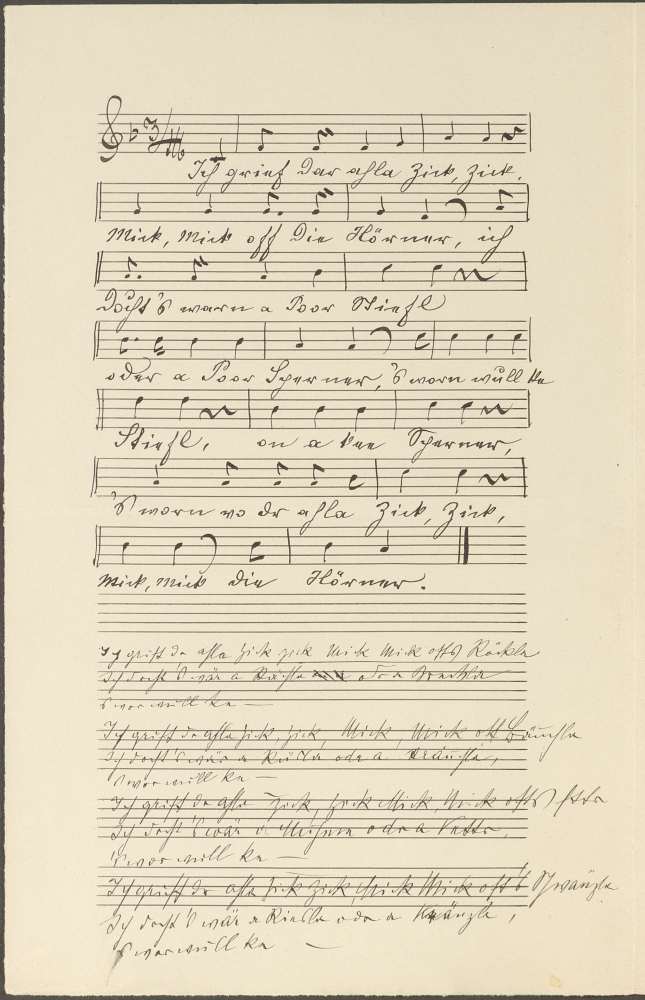 Ich grief dar ahla Zick, Zick.
Mick, Mick off die Hörner, ich
docht's warn a Poor Stiefl
oder a Poor Sperner, 's worn wull ke
Stiefl, on a kee Sperner,
's worn vo dr ahla Zick, Zick,
Mick, Mick die Hörner.
Ich griff dr ahla Zick Zick Mick Mick offs Röckla
Ich docht's wär a oder a
s'wor wull ke —
Ich griff dr ahla Zick, Zick, Mick, Mick off Bäuchla
Ich docht's wär a oder a
s'wor wull ke —
Ich griff dr ahla Zick, Zick Mick, Mick offs
Ich docht's wär a oder a Vettr,
s'wor wull ke —
Ich griff dr ahla Zick Zick Mick Mick off's Schwänzla
Ich docht's wär a oder a Kränzla,
s'wor wull ke —